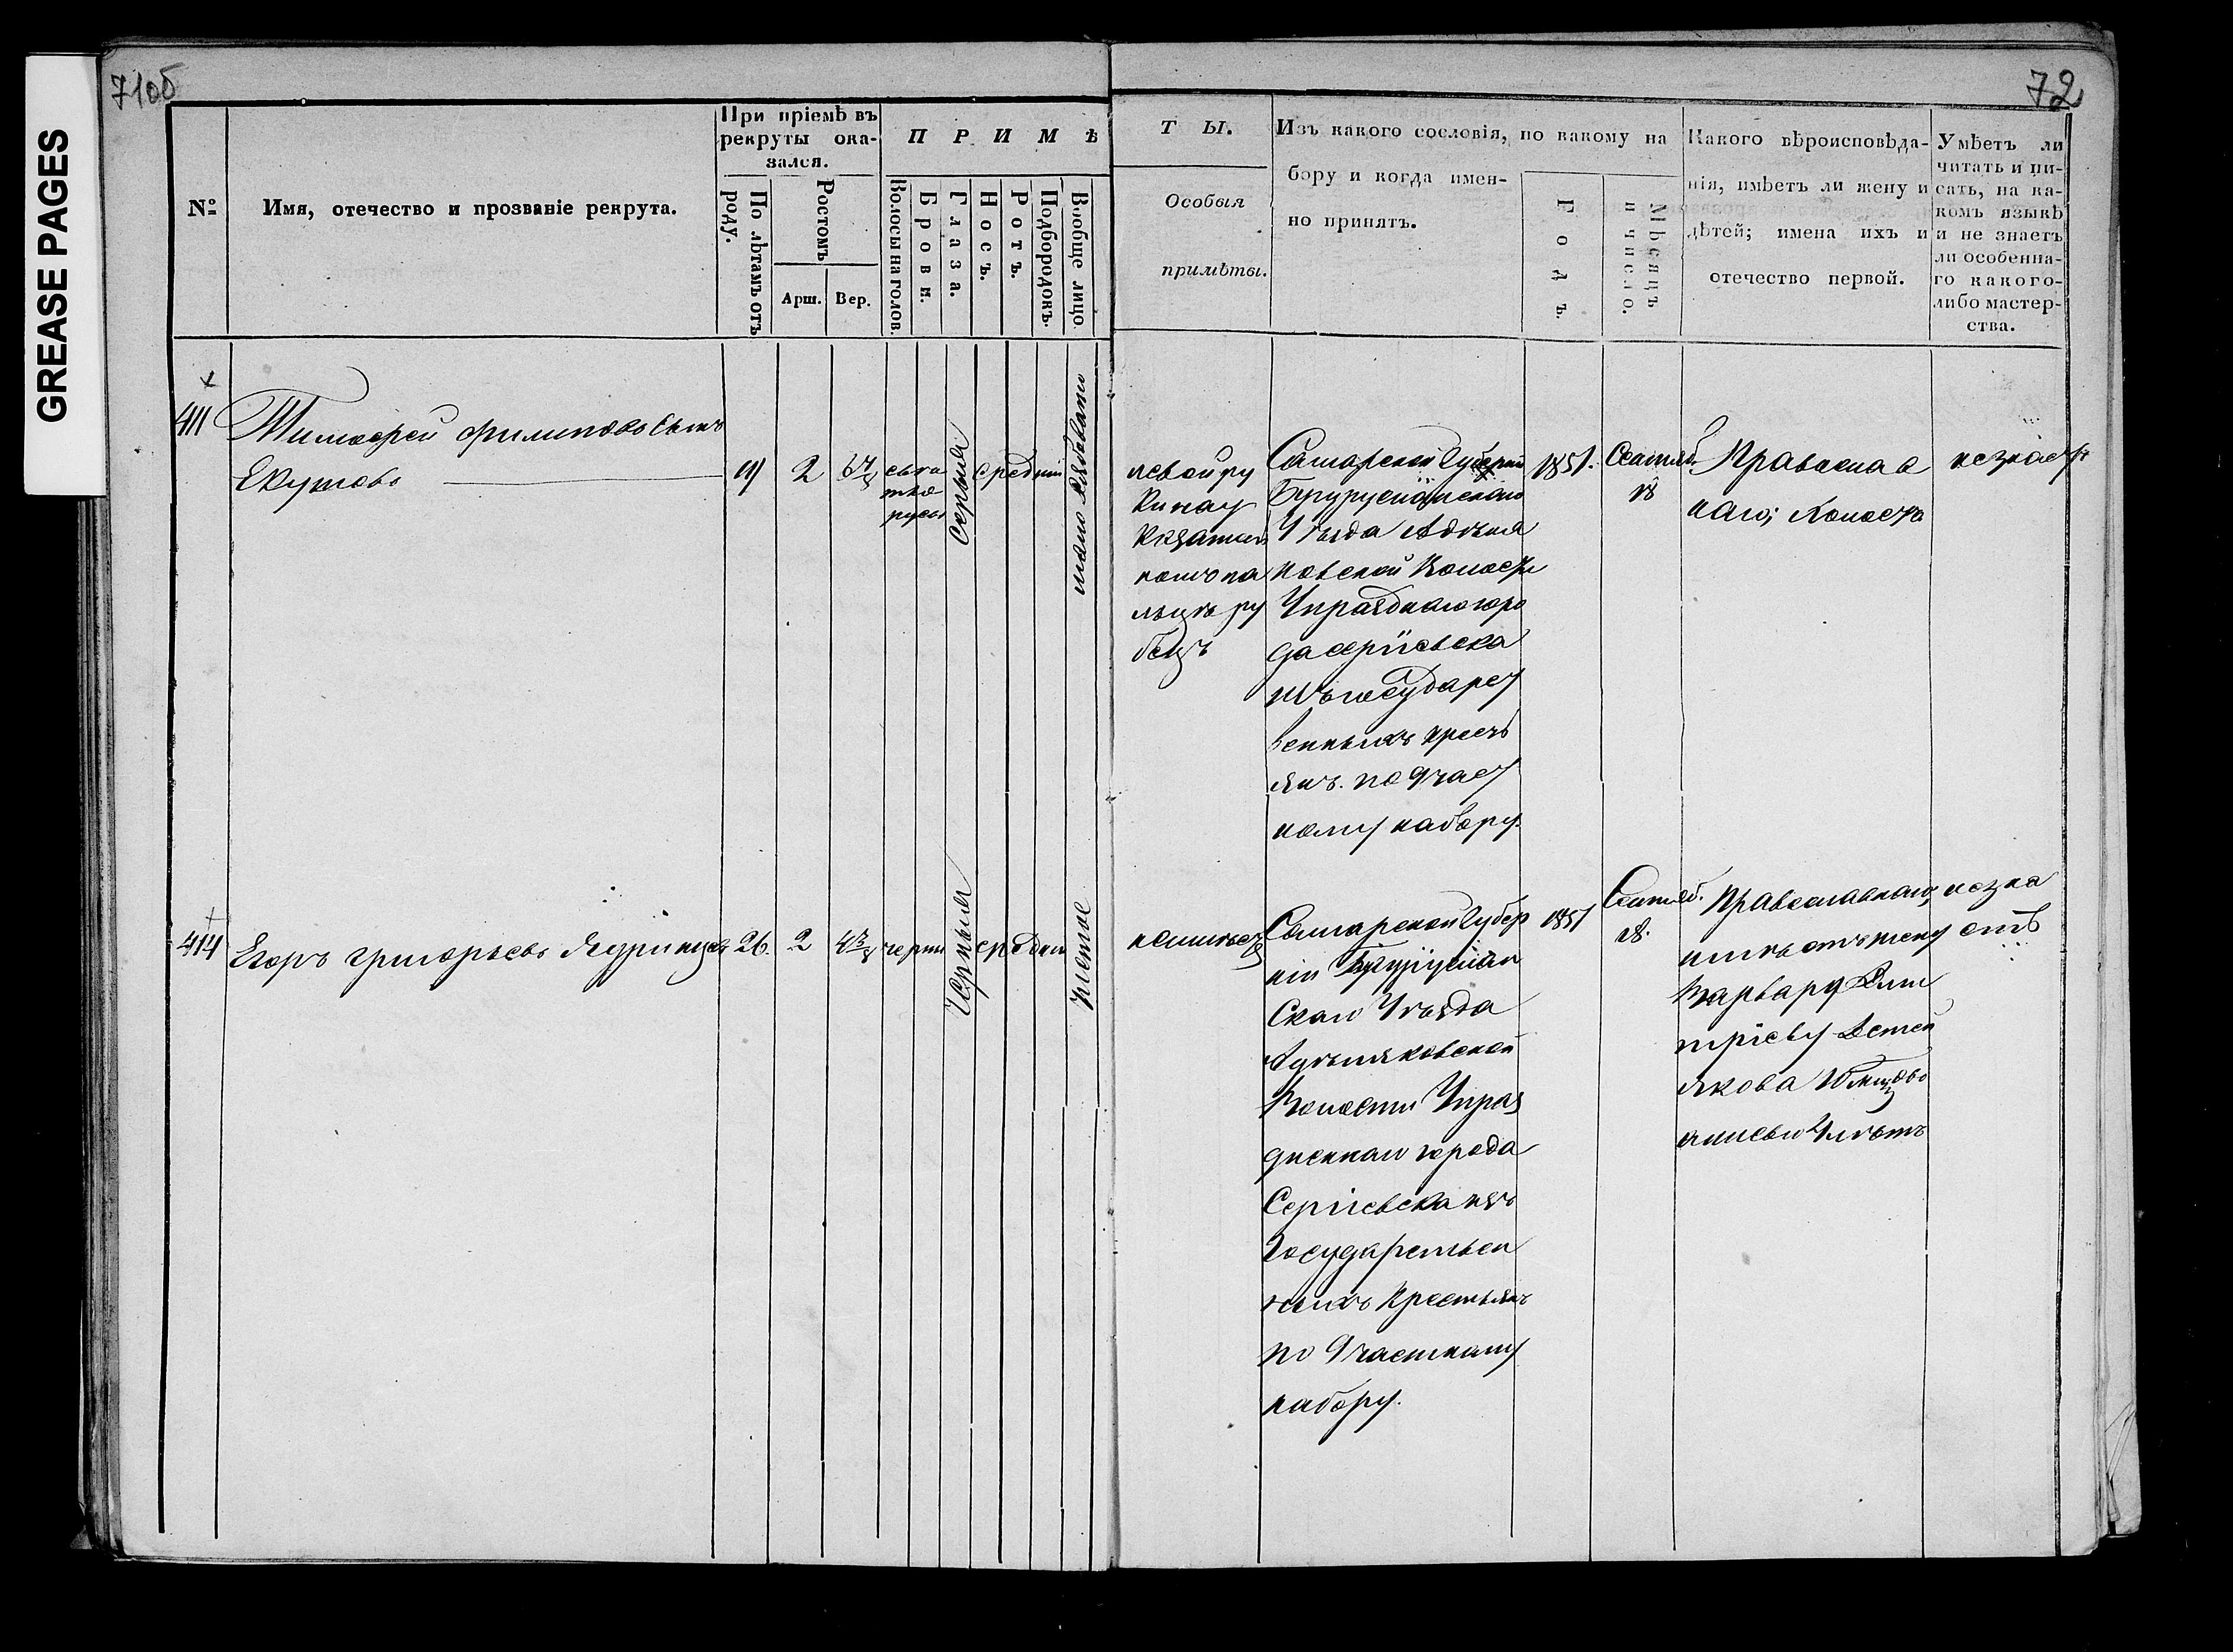 GREASE PAGES
71об
72
№
Имя, отечество и прозваніе рекрута.
При пріемѣ въ
рекруты ока-
зался.
По лѣтамъ отъ
роду.
Ростомъ
Арш.
Вер.
П Р И М Ѣ
Волосы на голов.
Брови.
Глаза.
Носъ.
Ротъ.
Подбородокъ.
Вообще лицо.
Т Ы.
Особыя
примѣты.
Изъ какого сословія, по какому на
бору и когда имен-
но принятъ.
Годъ.
Мѣсяцъ
и число.
Какого вѣроисповѣда-
нія, имѣетъ ли жену и
дѣтей; имена ихъ и
отечество первой.
Умѣетъ ли
читать и пи-
сать, на ка-
комъ языкѣ
и не знаетъ
ли особенна-
го какого-
либо мастер-
ства.
411
Тимофей филиповъ сынъ
Якутовъ
2
свѣ
тло
русы
Серыя
средній
мало рябовато
левой ру
ки на у
казатель
номъ па
льцѣ ру
бецъ
Самарской Губерніи
Бугурусланскаго
Уѣзда
новской Волости
Упразднаго горо
да сергіевска
изъ государст
венныхъ кресть
янъ. по Част
ному набору.
1851.
Сентяб.
18
Православ
наго; Холостъ
незнаетъ
414
Егоръ григорьевъ Ядринцевъ
26.
2
черны
Черныя
средни
чистое
неимѣетъ
Самарской Губер
ніи Бугуруслан
Скаго Уѣзда
Волости Упраз
дненнаго города
Сергіевска изъ
Государствен
ныхъ Крестьянъ
по Частному
набору.
1851
Сентяб.
18.
Православнаго,
имѣетъ жену
Варвару Дми
тріеву Детей
якова
незна
етъ